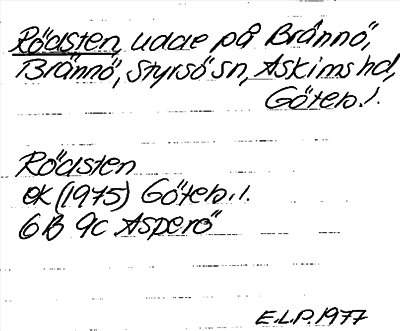 Rödsten, udde på Brännö,
Brännö, Styrsö sn, Askims hd,
Göteb. l.
Rödsten
ek (1975) Göteb. l.
6B 9c Asperö
E.L.P. 1977